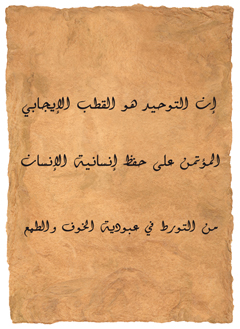 إن التوحيد هو القطب الإيجابي
المؤتمن على حفظ إنسانية الإنسان
من التورط في عبودية الخوف والطمع